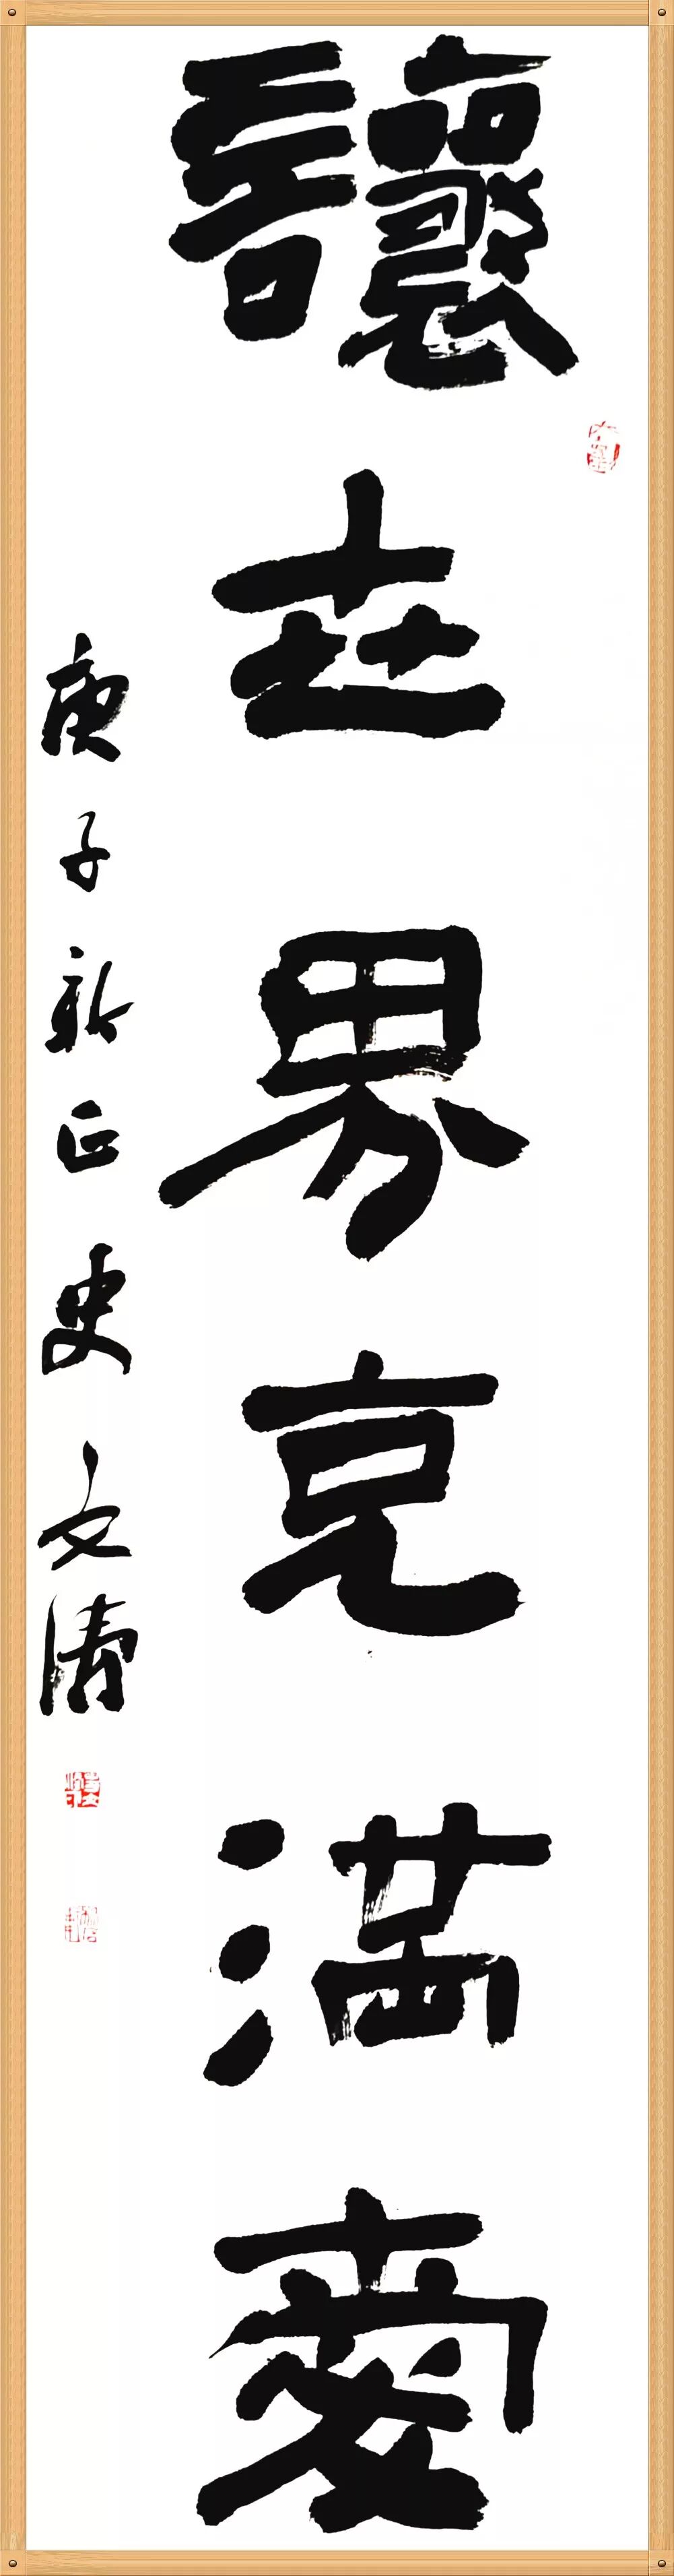 讓世界充滿愛
庚子新正史文清